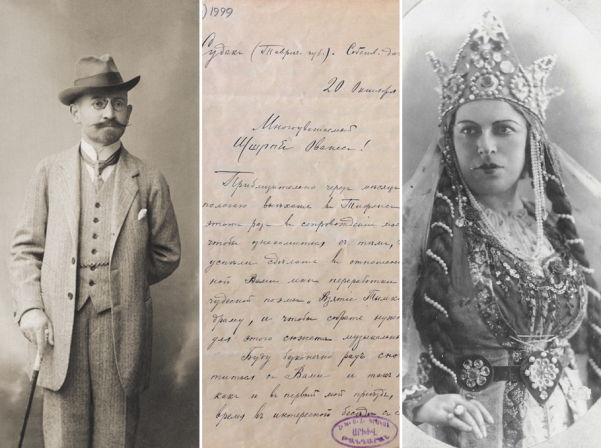 ) 1999
Судак (Таврич. губ.). Собств. да
20 Октября
Многоуважаемый
Ованес!
Приблизительно через месяц
полагаю выехать в Тифлис
этот раз – в сопровождении мое
чтобы ознакомиться съ тем, ч
успели сделать в отношени
ной Вами мне переработки
чудесной поэмы, Взятие Тмка
драму, и чтобы собрать нужн
для этого сюжета музыкальн
Буду бесконечно радъ сно
титься с Вами и так
как и в первый мой приезд,
время в интересной беседе с
ԹԱՆԳԱՐԱՆ